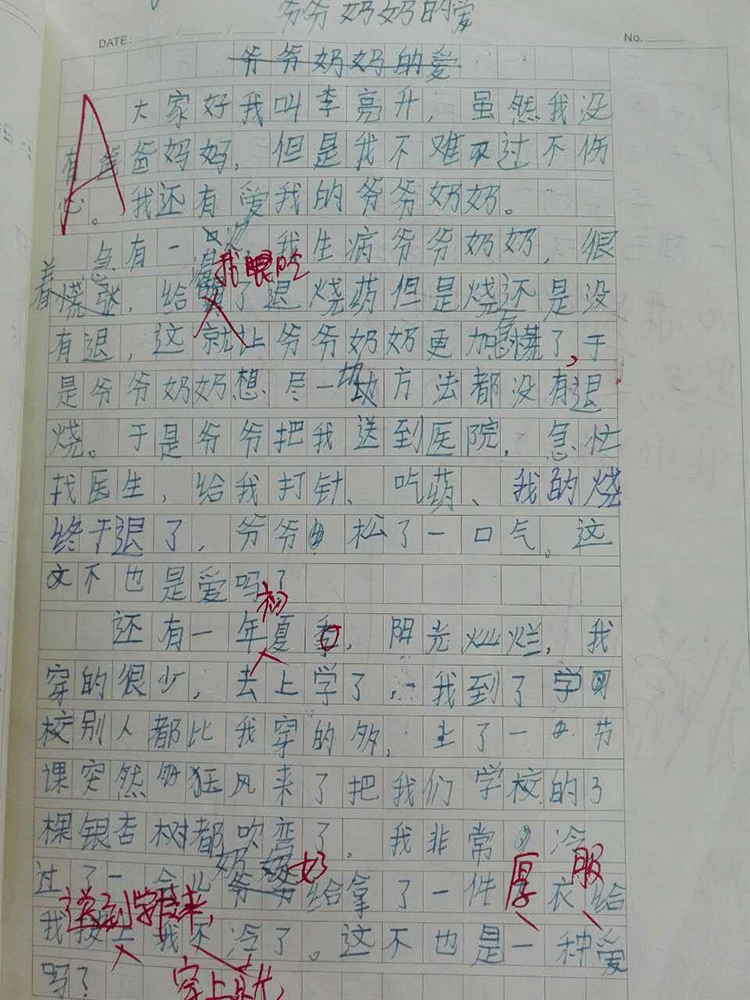 爷爷奶奶的爱
DATE: / / No.
爷爷奶奶的爱
大家好我叫李亮升，虽然我没
有爸爸妈妈，但是我不难不过不伤
心。我还有爱我的爷爷奶奶。
急有一次我生病爷爷奶奶，很
着慌张，给我喂吃了退烧药但是烧还是没
有退，这就让爷爷奶奶更加慌了，于
是爷爷奶奶想尽一切办方法都没有退
烧。于是爷爷把我送到医院，急忙
找医生，给我打针、吃药、我的烧
终于退了，爷爷松了一口气。这
不也是爱吗？
还有一年初夏，阳光灿烂，我
穿的很少，去上学了，我到了学
校别人都比我穿的多，上了一节
课突然狂风来了把我们学校的3
棵银杏树都吹弯了。我非常冷
过了一会儿奶奶给拿了一件厚衣服给
我送到学校来，穿上我不冷了。这不也是一种爱
吗？
A